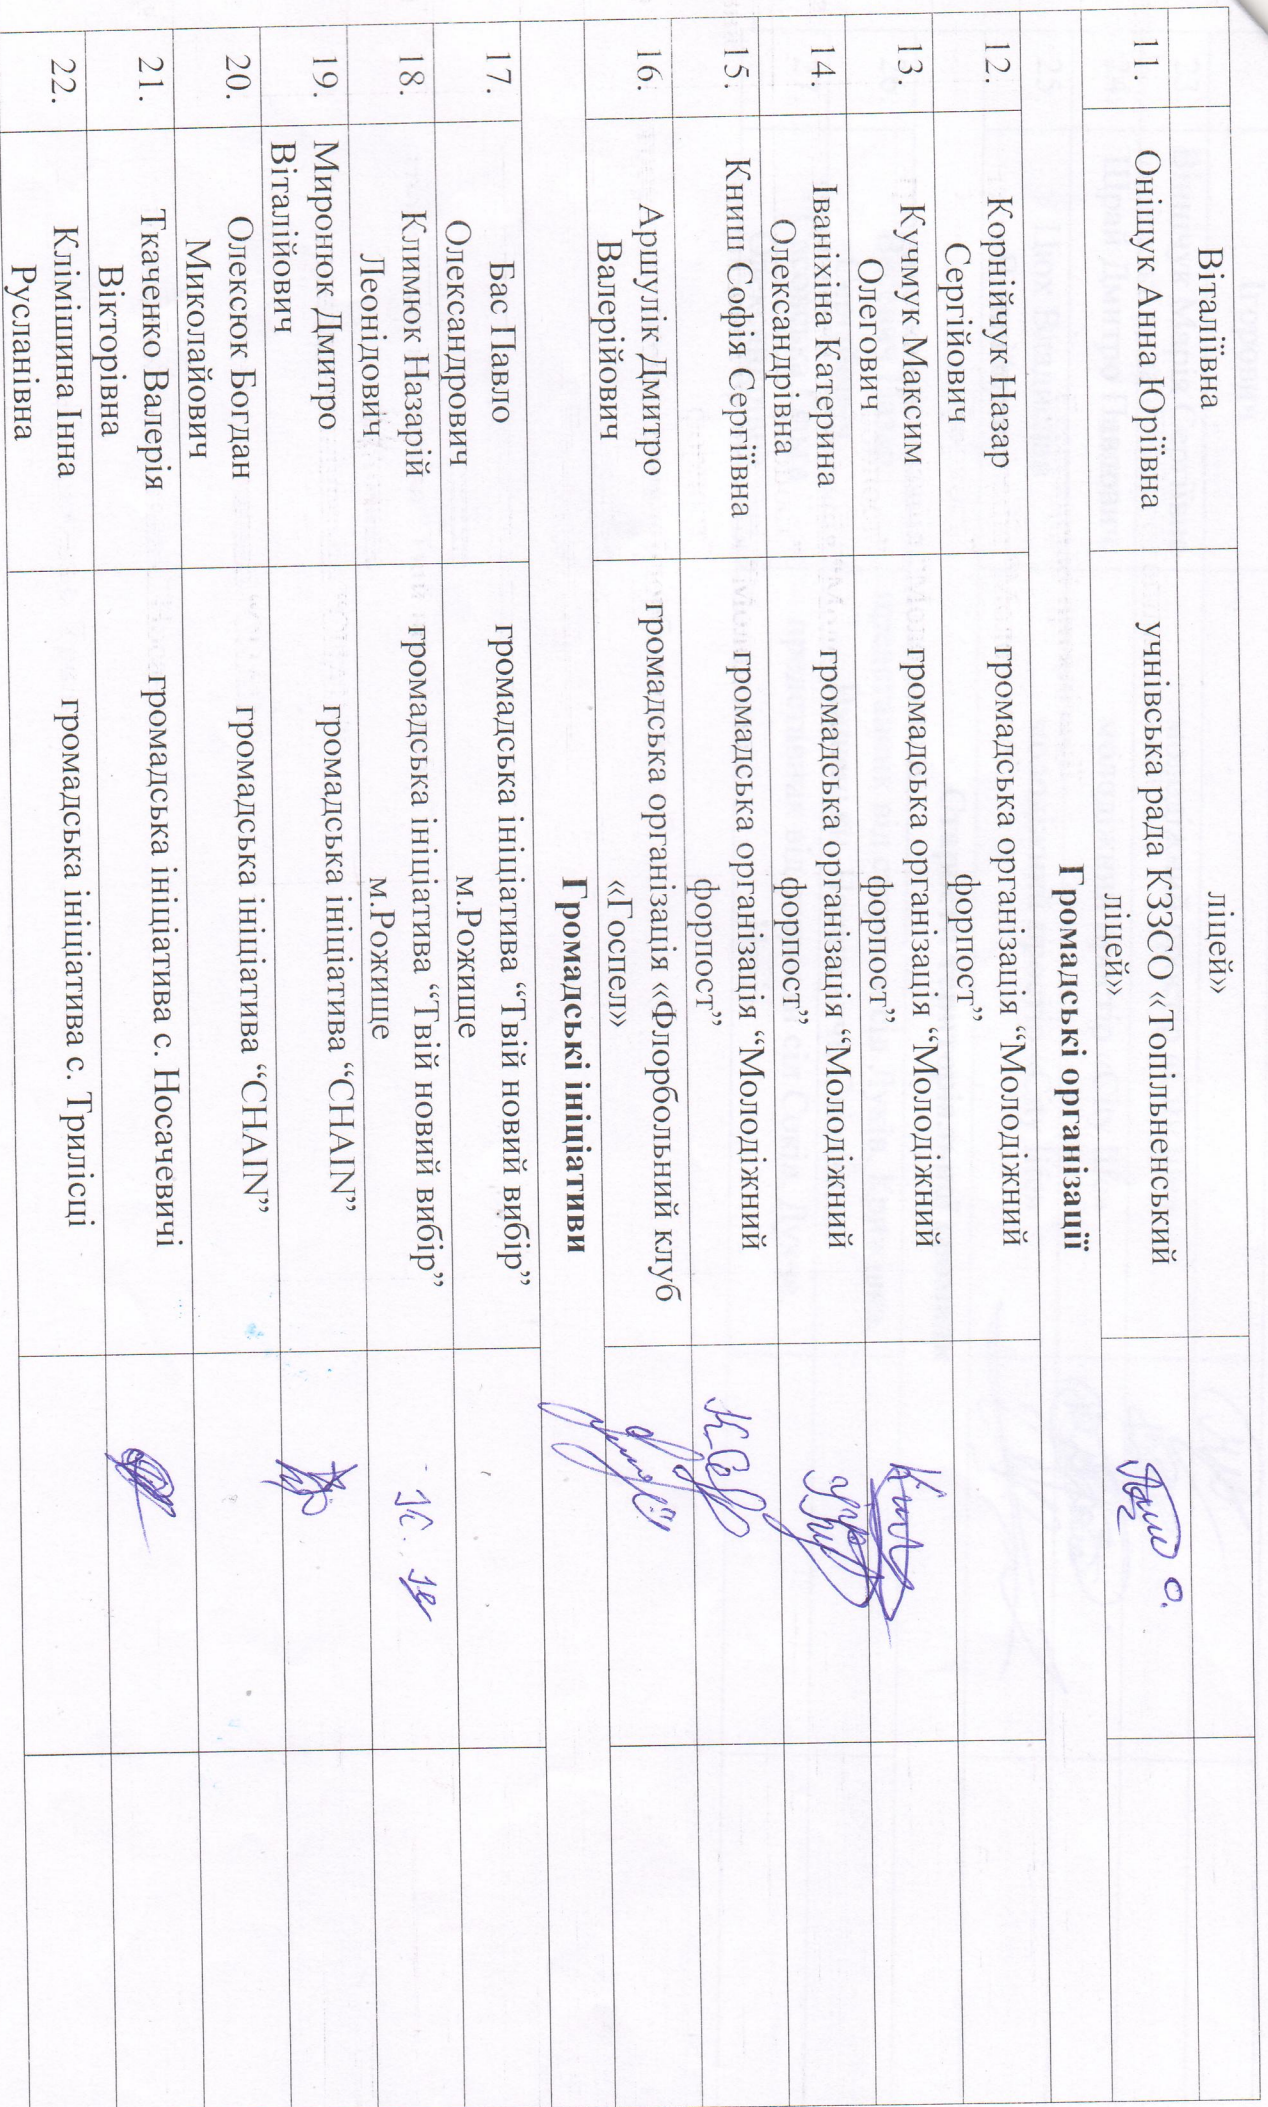 Віталіївна
ліцей»
11.
Оніщук Анна Юріївна
учнівська рада КЗЗСО «Топільненський
ліцей»
Громадські організації
12.
Корнійчук Назар
Сергійович
громадська організація “Молодіжний
форпост”
13.
Кучмук Максим
Олегович
громадська організація “Молодіжний
форпост”
14.
Іваніхіна Катерина
Олександрівна
громадська організація “Молодіжний
форпост”
15.
Книш Софія Сергіївна
громадська організація “Молодіжний
форпост”
16.
Аршулік Дмитро
Валерійович
громадська організація «Флорбольний клуб
«Госпел»
Громадські ініціативи
17.
Бас Павло
Олександрович
громадська ініціатива “Твій новий вибір”
м.Рожище
18.
Климюк Назарій
Леонідович
громадська ініціатива “Твій новий вибір”
м.Рожище
19.
Миронюк Дмитро
Віталійович
громадська ініціатива “CHAIN”
20.
Олексюк Богдан
Миколайович
громадська ініціатива “CHAIN”
21.
Ткаченко Валерія
Вікторівна
громадська ініціатива с. Носачевичі
22.
Клімішина Інна
Русланівна
громадська ініціатива с. Трилісці